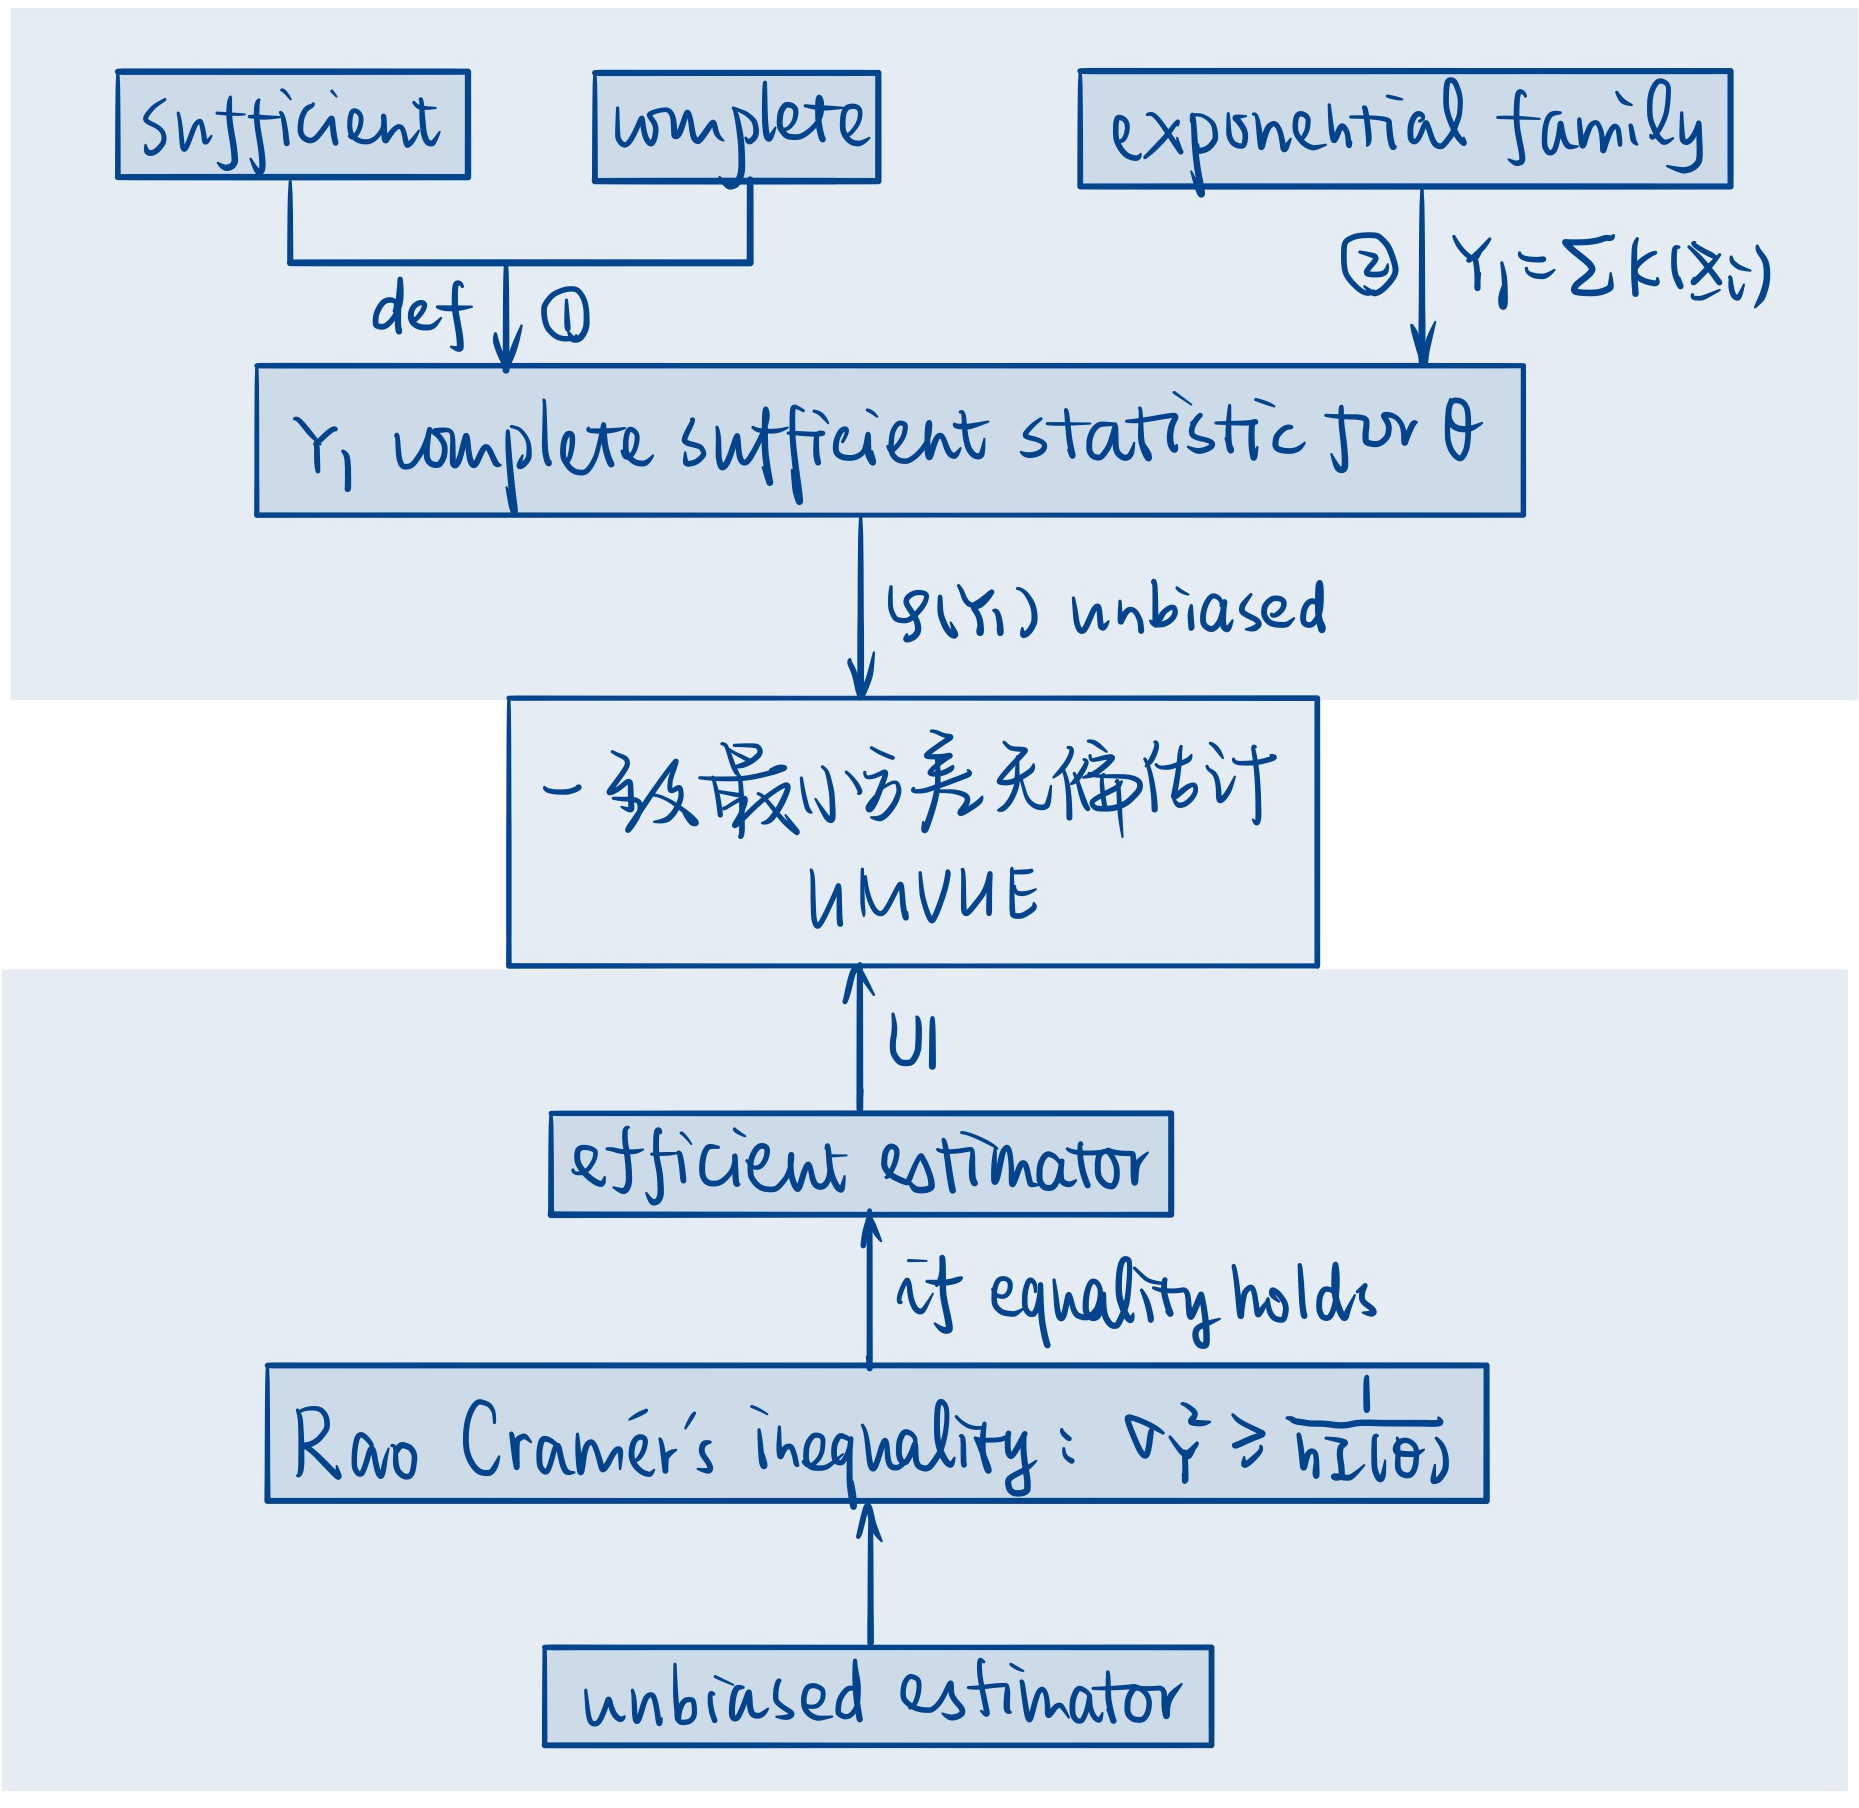 sufficient
complete
exponential family
def ①
② Y₁ = ΣK(xᵢ)
Y₁ complete sufficient statistic for θ
φ(Y₁) unbiased
一致最小方差无偏估计
UMVUE
UI
efficient estimator
if equality holds
Rao Cramér's inequality : σ_Y² ≥ 1/(nI(θ))
unbiased estimator